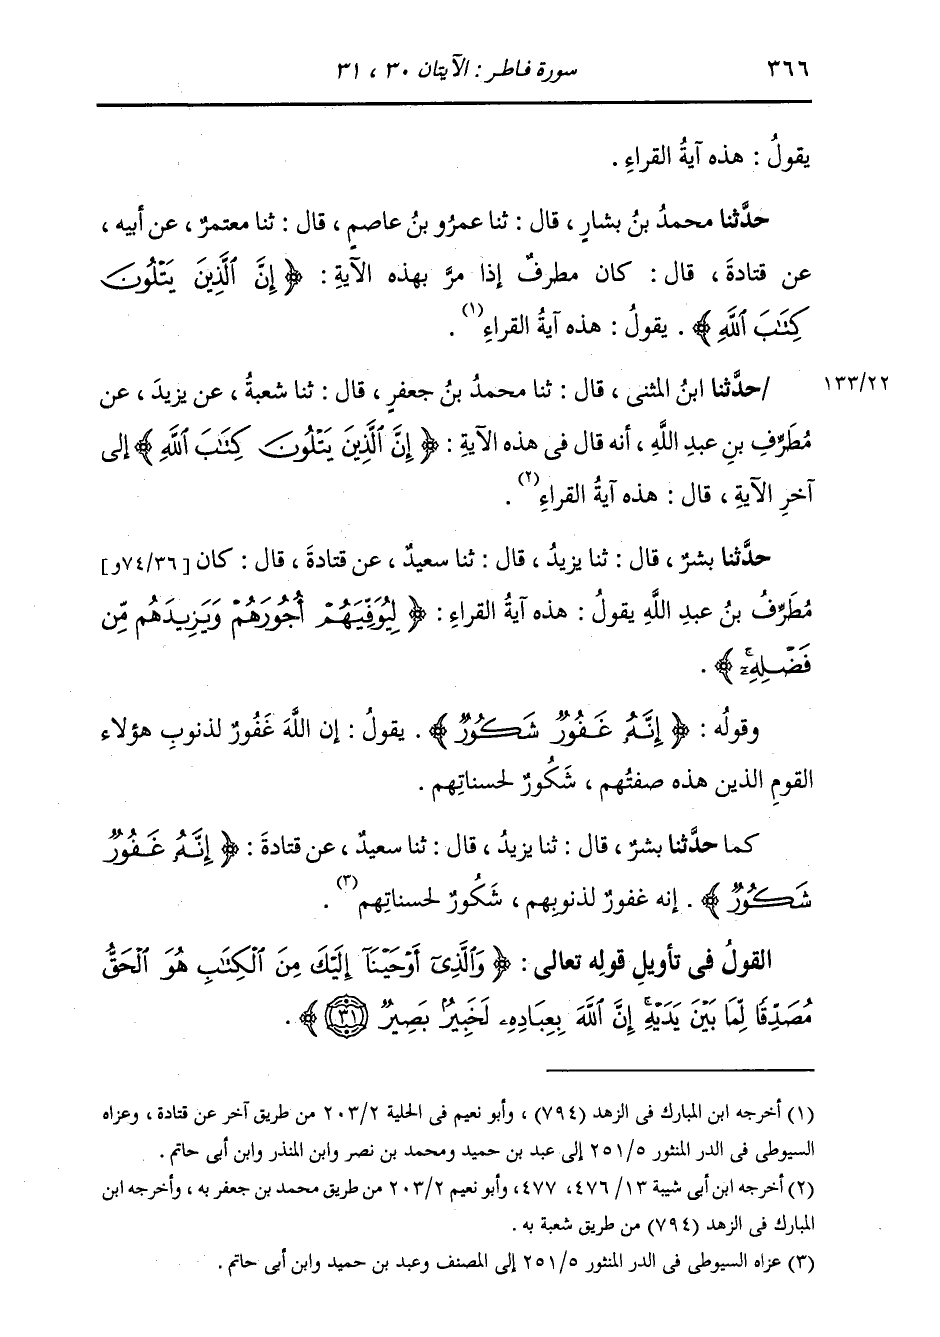 ٣٦٦ سورة فاطر : الآيتان ٣٠ ، ٣١
يقولُ : هذه آيةُ القراءِ .
حدَّثنا محمدُ بنُ بشارٍ ، قال : ثنا عمرُو بنُ عاصمٍ ، قال : ثنا معتمرٌ ، عن أبيه ،
عن قتادةَ ، قال : كان مطرفٌ إذا مرَّ بهذه الآيةِ : ﴿ إِنَّ ٱلَّذِينَ يَتْلُونَ
كِتَٰبَ ٱللَّهِ ﴾ . يقولُ : هذه آيةُ القراءِ(١) .
١٣٣/٢٢ /حدَّثنا ابنُ المثنى ، قال : ثنا محمدُ بنُ جعفرٍ ، قال : ثنا شعبةُ ، عن يزيدَ ، عن
مُطَرِّفِ بنِ عبدِ اللَّهِ ، أنه قال فى هذه الآيةِ : ﴿ إِنَّ ٱلَّذِينَ يَتْلُونَ كِتَٰبَ ٱللَّهِ ﴾ إلى
آخرِ الآيةِ ، قال : هذه آيةُ القراءِ(٢) .
حدَّثنا بشرٌ ، قال : ثنا يزيدُ ، قال : ثنا سعيدٌ ، عن قتادةَ ، قال : كان [٧٤/٣٦و]
مُطَرِّفُ بنُ عبدِ اللَّهِ يقولُ : هذه آيةُ القراءِ : ﴿ لِيُوَفِّيَهُمْ أُجُورَهُمْ وَيَزِيدَهُم مِّن
فَضْلِهِۦٓ ﴾ .
وقولُه : ﴿ إِنَّهُۥ غَفُورٌ شَكُورٌ ﴾ . يقولُ : إن اللَّهَ غَفُورٌ لذنوبِ هؤلاء
القومِ الذين هذه صفتُهم ، شَكُورٌ لحسناتِهم .
كما حدَّثنا بشرٌ ، قال : ثنا يزيدُ ، قال : ثنا سعيدٌ ، عن قتادةَ : ﴿ إِنَّهُۥ غَفُورٌ
شَكُورٌ ﴾ . إنه غفورٌ لذنوبِهم ، شَكُورٌ لحسناتِهم(٣) .
القولُ فى تأويلِ قولِه تعالى : ﴿ وَٱلَّذِىٓ أَوْحَيْنَآ إِلَيْكَ مِنَ ٱلْكِتَٰبِ هُوَ ٱلْحَقُّ
مُصَدِّقًا لِّمَا بَيْنَ يَدَيْهِ إِنَّ ٱللَّهَ بِعِبَادِهِۦ لَخَبِيرٌۢ بَصِيرٌ ٣١ ﴾ .
(١) أخرجه ابن المبارك فى الزهد (٧٩٤) ، وأبو نعيم فى الحلية ٢٠٣/٢ من طريق آخر عن قتادة ، وعزاه
السيوطى فى الدر المنثور ٢٥١/٥ إلى عبد بن حميد ومحمد بن نصر وابن المنذر وابن أبى حاتم .
(٢) أخرجه ابن أبى شيبة ١٣/ ٤٧٦، ٤٧٧، وأبو نعيم ٢٠٣/٢ من طريق محمد بن جعفر به ، وأخرجه ابن
المبارك فى الزهد (٧٩٤) من طريق شعبة به .
(٣) عزاه السيوطى فى الدر المنثور ٢٥١/٥ إلى المصنف وعبد بن حميد وابن أبى حاتم .